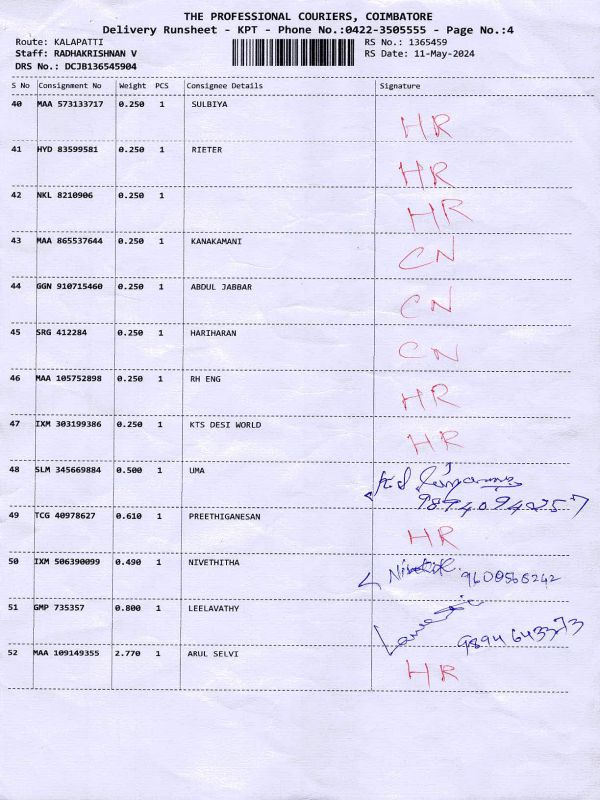 THE PROFESSIONAL COURIERS, COIMBATORE
Delivery Runsheet - KPT - Phone No.:0422-3505555 - Page No.:4
Route: KALAPATTI RS No.: 1365459
Staff: RADHAKRISHNAN V RS Date: 11-May-2024
DRS No.: DCJB136545904
S No Consignment No Weight PCS Consignee Details Signature
40 MAA 573133717 0.250 1 SULBIYA HR
41 HYD 83599581 0.250 1 RIETER HR
42 NKL 8210906 0.250 1 HR
43 MAA 865537644 0.250 1 KANAKAMANI CN
44 GGN 910715460 0.250 1 ABDUL JABBAR CN
45 SRG 412284 0.250 1 HARIHARAN CN
46 MAA 105752898 0.250 1 RH ENG HR
47 IXM 303199386 0.250 1 KTS DESI WORLD HR
48 SLM 345669884 0.500 1 UMA
49 TCG 40978627 0.610 1 PREETHIGANESAN HR
50 IXM 506390099 0.490 1 NIVETHITHA
51 GMP 735357 0.800 1 LEELAVATHY 9894643373
52 MAA 109149355 2.770 1 ARUL SELVI HR